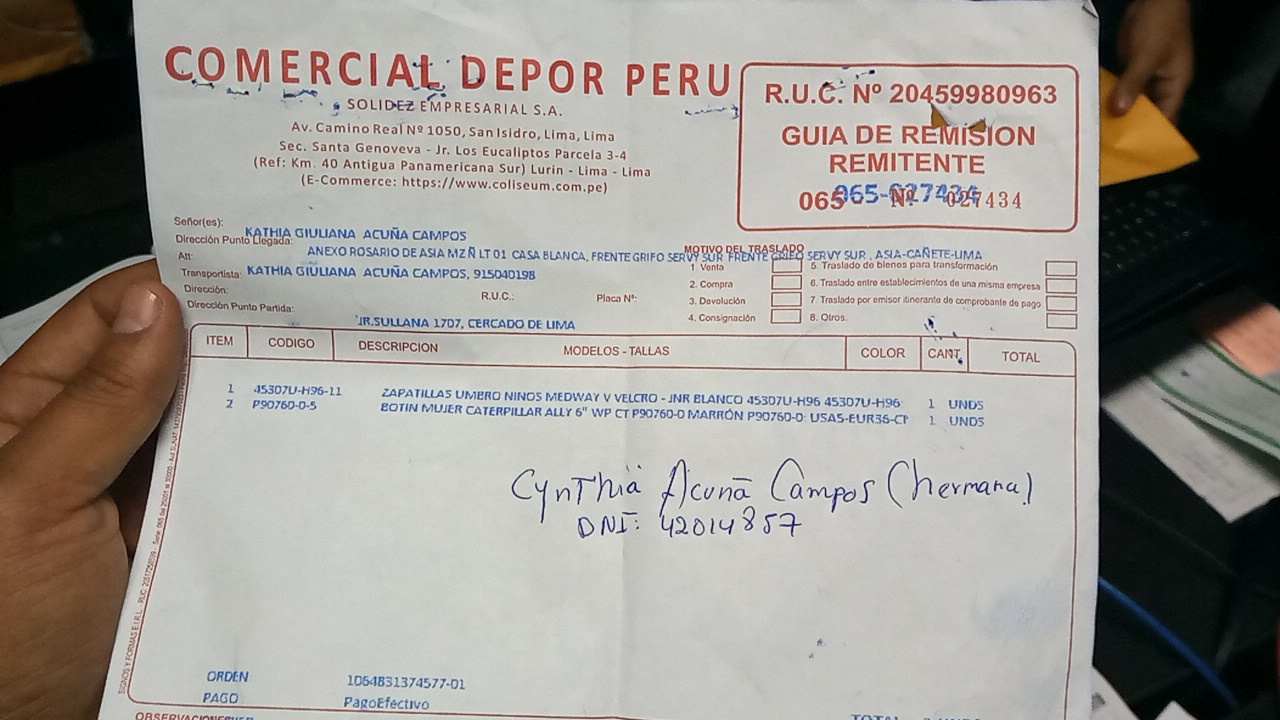 COMERCIAL DEPOR PERU
SOLIDEZ EMPRESARIAL S.A.
Av. Camino Real Nº 1050, San Isidro, Lima, Lima
Sec. Santa Genoveva - Jr. Los Eucaliptos Parcela 3-4
(Ref: Km. 40 Antigua Panamericana Sur) Lurin - Lima - Lima
(E-Commerce: https://www.coliseum.com.pe)
R.U.C. Nº 20459980963
GUIA DE REMISION
REMITENTE
065 - Nº 027434
065-027434
Señor(es): KATHIA GIULIANA ACUÑA CAMPOS
Dirección Punto Llegada: ANEXO ROSARIO DE ASIA MZ Ñ LT 01 CASA BLANCA, FRENTE GRIFO SERVY SUR FRENTE GRIFO SERVY SUR , ASIA-CAÑETE-LIMA
Att:
Transportista: KATHIA GIULIANA ACUÑA CAMPOS, 915040198
Dirección: R.U.C.: Placa Nº:
Dirección Punto Partida: JR.SULLANA 1707, CERCADO DE LIMA
MOTIVO DEL TRASLADO
1. Venta
2. Compra
3. Devolución
4. Consignación
5. Traslado de bienes para transformación
6. Traslado entre establecimientos de una misma empresa
7. Traslado por emisor itinerante de comprobante de pago
8. Otros.
ITEM CODIGO DESCRIPCION MODELOS - TALLAS COLOR CANT. TOTAL
1 45307U-H96-11 ZAPATILLAS UMBRO NINOS MEDWAY V VELCRO - JNR BLANCO 45307U-H96 45307U-H96- 1 UNDS
2 P90760-0-5 BOTIN MUJER CATERPILLAR ALLY 6" WP CT P90760-0 MARRÓN P90760-0: USA5-EUR36-CM 1 UNDS
Cynthia Acuña Campos (hermana)
DNI: 42014857
ORDEN 1064831374577-01
PAGO PagoEfectivo